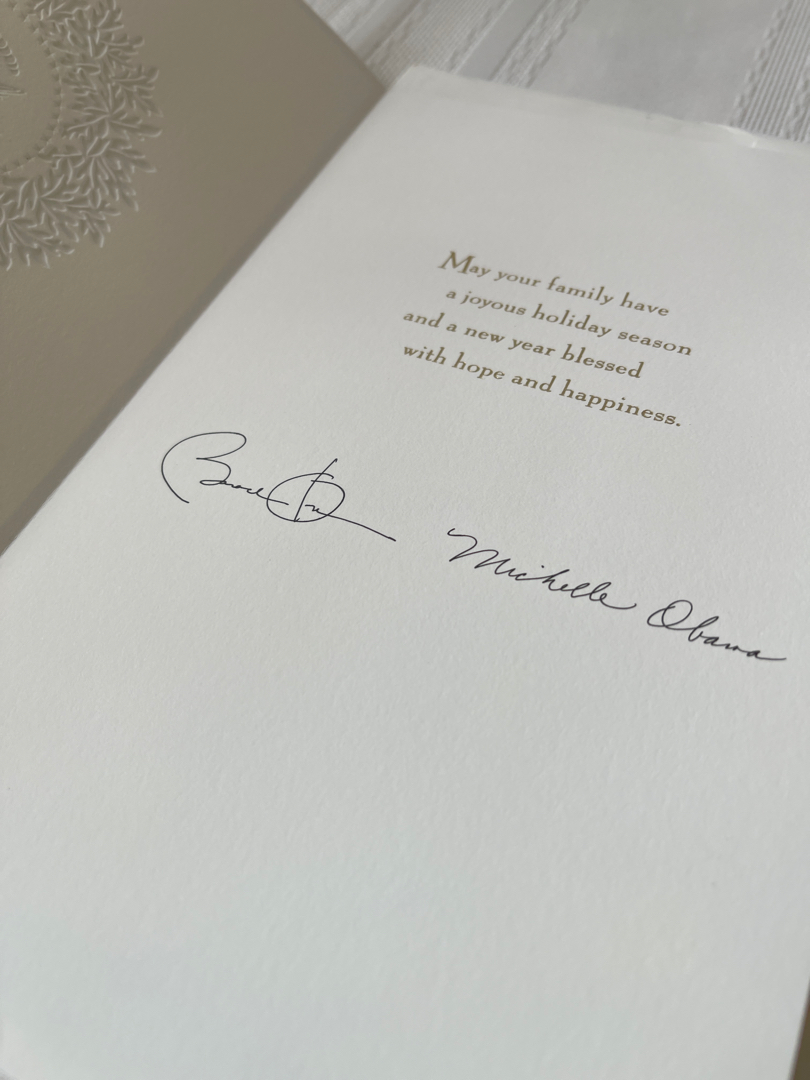 May your family have
a joyous holiday season
and a new year blessed
with hope and happiness.
Barack Obama Michelle Obama